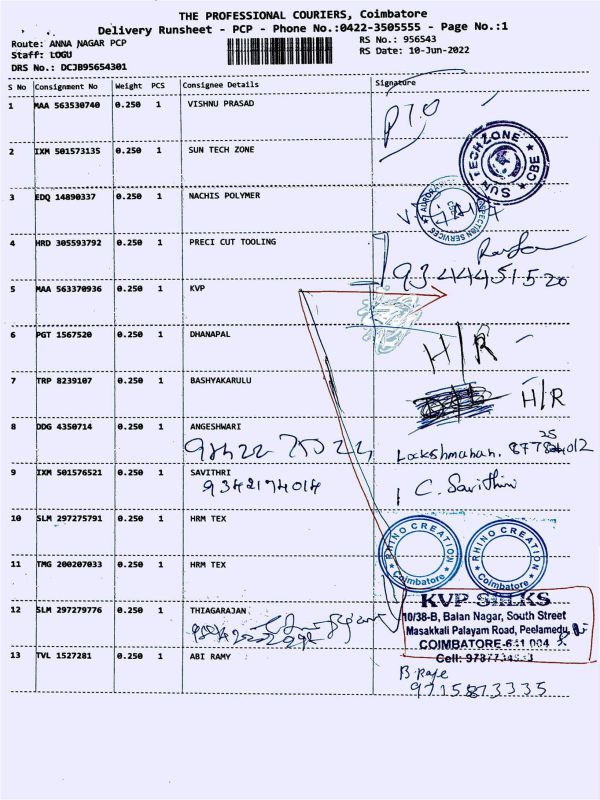 THE PROFESSIONAL COURIERS, Coimbatore
Delivery Runsheet - PCP - Phone No.:0422-3505555 - Page No.:1
Route: ANNA NAGAR PCP
RS No.: 956543
Staff: LOGU
RS Date: 10-Jun-2022
DRS No.: DCJB95654301
S No Consignment No Weight PCS Consignee Details Signature
1 MAA 563530740 0.250 1 VISHNU PRASAD
PTO
2 IXM 501573135 0.250 1 SUN TECH ZONE
SUN TECH ZONE CBE
3 EDQ 14890337 0.250 1 NACHIS POLYMER
4 HRD 305593792 0.250 1 PRECI CUT TOOLING
9344451520
5 MAA 563370936 0.250 1 KVP
6 PGT 1567520 0.250 1 DHANAPAL
H/R
7 TRP 8239107 0.250 1 BASHYAKARULU
H/R
8 DDG 4350714 0.250 1 ANGESHWARI
9 IXM 501576521 0.250 1 SAVITHRI
9342174014
C. Savithri
10 SLM 297275791 0.250 1 HRM TEX
RHINO CREATION Coimbatore
RHINO CREATION Coimbatore
11 TMG 200207033 0.250 1 HRM TEX
KVP SILKS
10/38-B, Balan Nagar, South Street
Masakkali Palayam Road, Peelamedu
COIMBATORE-641 004
12 SLM 297279776 0.250 1 THIAGARAJAN
13 TVL 1527281 0.250 1 ABI RAMY
9715873335